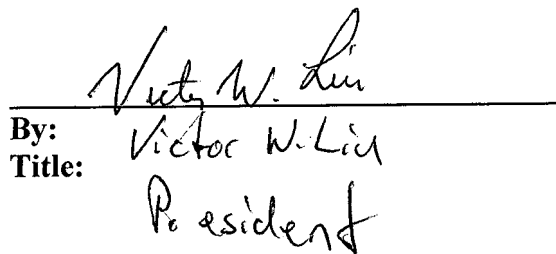 Victor W. Liu
By: Victor W. Liu
Title:
President